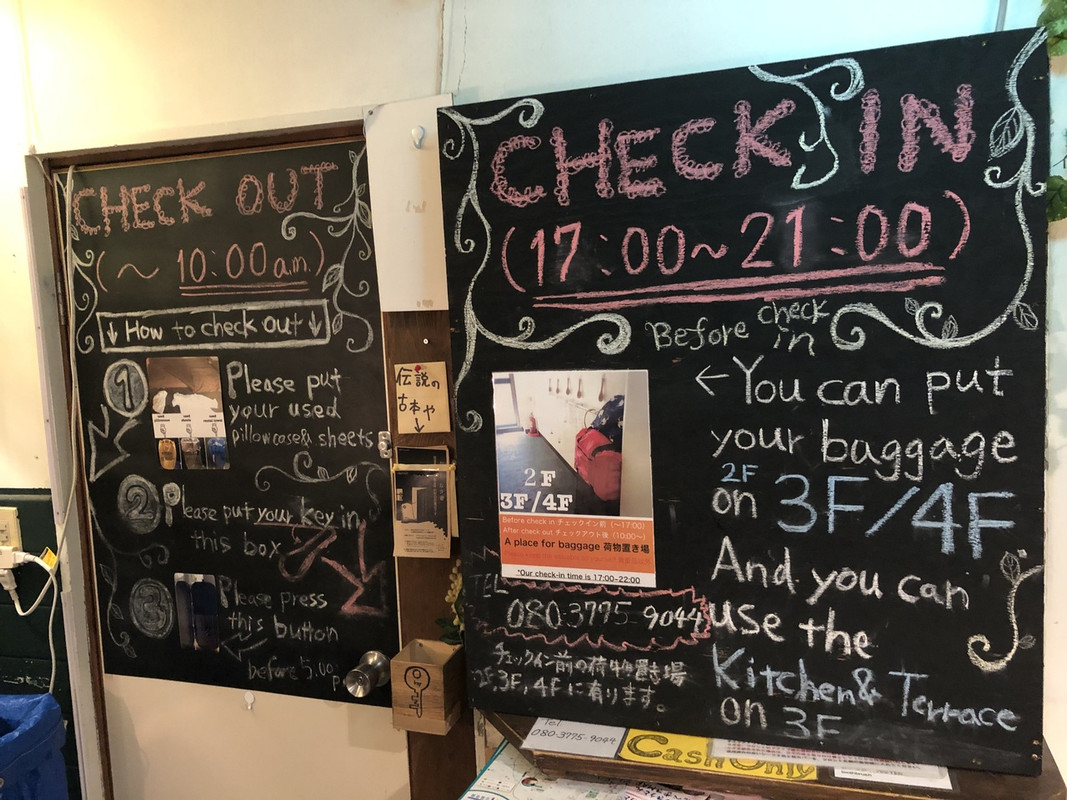 CHECK OUT
(~ 10:00 a.m.)
↓ How to check out ↓
1
Please put
your used
pillowcase & sheets
2
Please put your key in
this box
3
Please press
this button
before 5:00p
伝説の
古本や
↓
CHECK IN
(17:00~21:00)
Before check in
← You can put
your baggage
on 2F 3F/4F
And you can
use the
Kitchen & Terrace
on 3F
2F
3F/4F
Before check in チェックイン前（～17:00）
After check out チェックアウト後（10:00～）
A place for baggage 荷物置き場
*Our check-in time is 17:00-22:00
TEL
080-3775-9044
チェックイン前の荷物置き場
2F,3F,4Fに有ります。
Tel
080-3775-9044
Cash Only